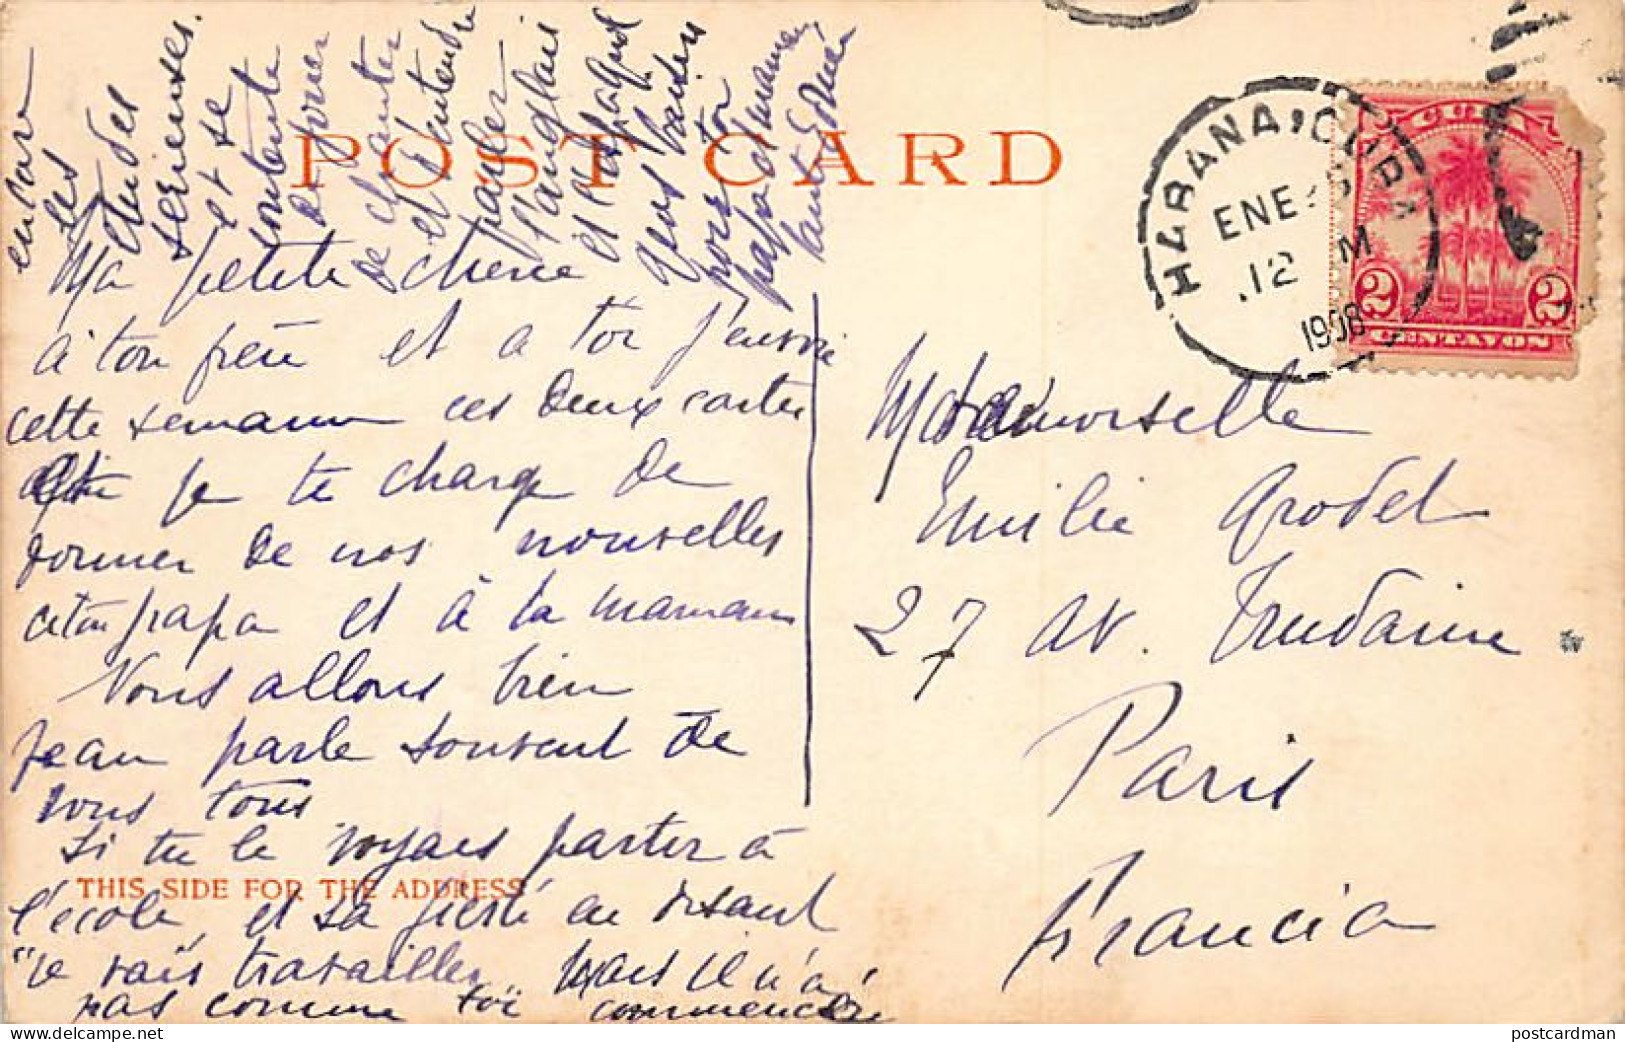 POST CARD
HABANA, CUBA
ENE
12 M
1908
CUBA
2 2
CENTAVOS
Ma petite cherie
à ton frère et à toi j'envoie
cette semaine ces deux cartes
je te charge de
donner de nos nouvelles
à ton papa et à ta maman
Nous allons bien
Jean parle souvent de
vous tous
Si tu le voyais partir à
THIS SIDE FOR THE ADDRESS
l'école, et sa fierté en disant
"je vais travailler" mais il n'a
pas comme toi commencé
encore
les
études
serieuses.
et se
contente
de jouer
de chanter
et d'entendre
parler
l'anglais
et l'espagnol
bons baisers
pour toi
papa et maman
tante Edmée
Mademoiselle
Emilie Grodet
27 av. Trudaine
Paris
Francia
postcardman